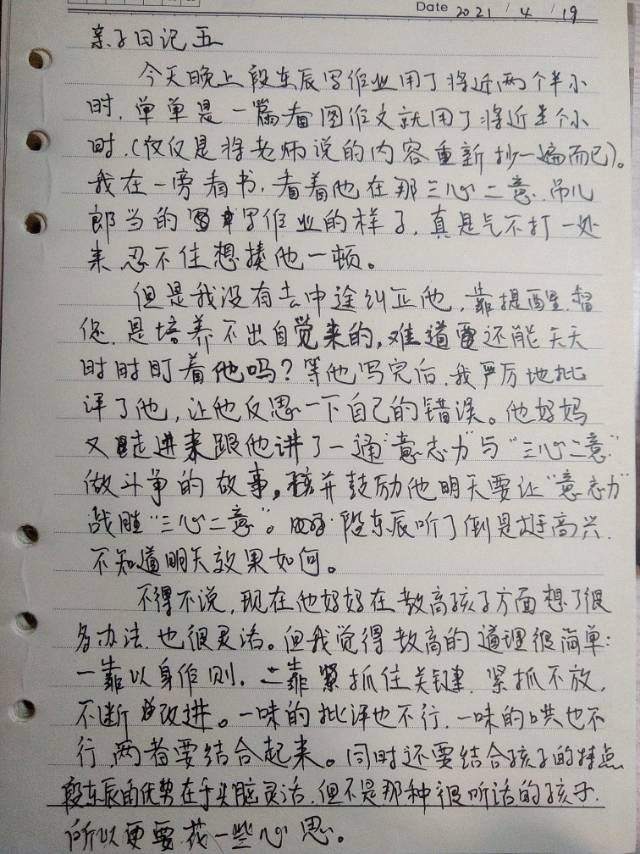 Date 2021 / 4 / 19
亲子日记五
今天晚上段东辰写作业用了将近两个半小
时，单单是一篇看图作文就用了将近半个小
时，（仅仅是将老师说的内容重新抄一遍而已）。
我在一旁看书，看着他在那三心二意、吊儿
郎当的写作业的样子，真是气不打一处
来忍不住想揍他一顿。
但是我没有去中途纠正他，靠提醒、督
促，是培养不出自觉来的，难道要还能天天
时时盯着他吗？等他写完后，我严厉地批
评了他，让他反思一下自己的错误。他妈妈
又走进来跟他讲了一通“意志力”与“三心二意”
做斗争的故事，并鼓励他明天要让“意志力”
战胜“三心二意”。段东辰听了倒是挺高兴，
不知道明天效果如何。
不得不说，现在他妈妈在教育孩子方面想了很
多办法，也很灵活。但我觉得教育的道理很简单：
一靠以身作则，二靠紧抓住关键，紧抓不放，
不断改进。一味的批评也不行，一味的哄也不
行，两者要结合起来。同时还要结合孩子的特点，
段东辰的优势在于头脑灵活，但不是那种很听话的孩子，
所以更要花一些心思。